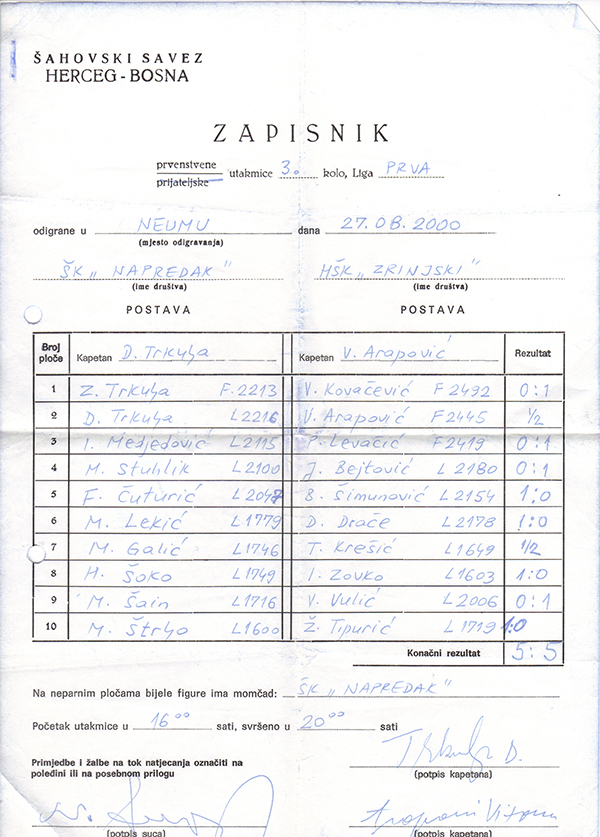 ŠAHOVSKI SAVEZ
HERCEG-BOSNA
ZAPISNIK
prvenstvene
prijateljske utakmice 3. kolo, Liga PRVA
odigrane u NEUMU dana 27.08.2000
(mjesto odigravanja)
ŠK „NAPREDAK" HŠK „ZRINJSKI"
(ime društva) (ime društva)
POSTAVA POSTAVA
Broj ploče Kapetan D. Trkulja Kapetan V. Arapović Rezultat
1 Z. Trkulja F.2213 V. Kovačević F2492 0:1
2 D. Trkulja L2216 V. Arapović F2445 ½
3 I. Medjedović L2115 P. Levačić F2419 0:1
4 M. Stuhlik L2100 J. Bejtović L2180 0:1
5 F. Čuturić L2047 B. Šimunović L2154 1:0
6 M. Lekić L1779 D. Drače L2178 1:0
7 M. Galić L1746 T. Krešić L1649 ½
8 H. Šoko L1749 I. Zovko L1603 1:0
9 M. Šain L1716 V. Vulić L2006 0:1
10 M. Štrbo L1600 Ž. Tipurić L1719 1:0
Konačni rezultat 5:5
Na neparnim pločama bijele figure ima momčad: ŠK „NAPREDAK"
Početak utakmice u 16⁰⁰ sati, svršeno u 20⁰⁰ sati
Trkulja D.
Primjedbe i žalbe na tok natjecanja označiti na
poleđini ili na posebnom prilogu
(potpis kapetana)
(potpis suca) (potpis kapetana)